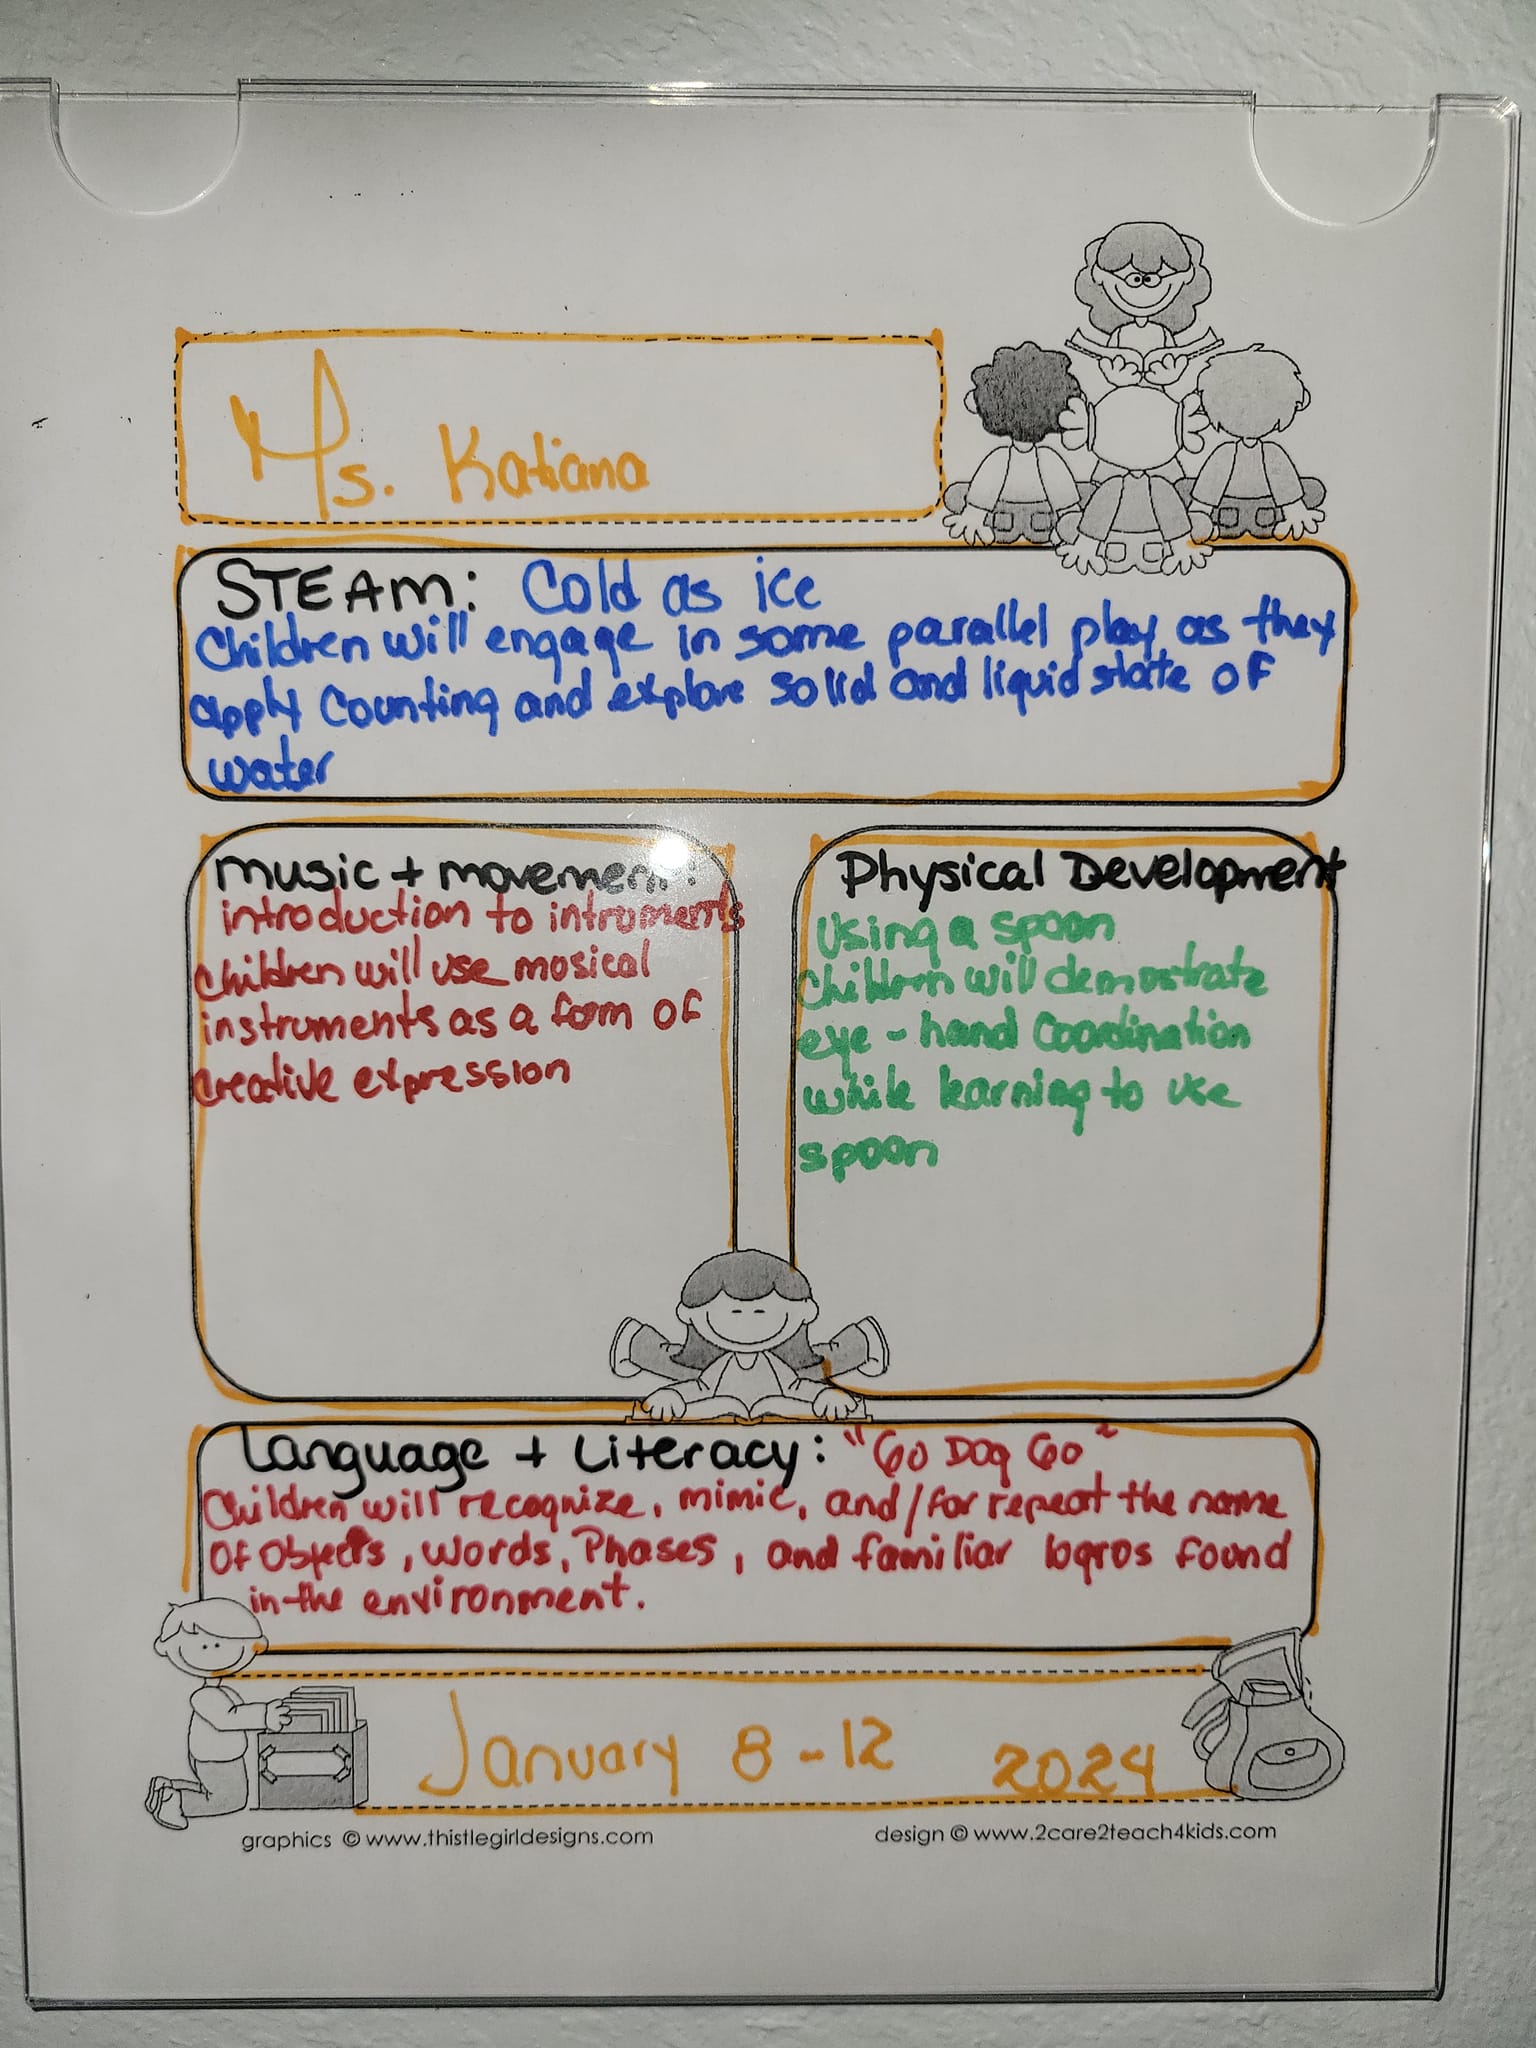 Ms. Katiana
STEAM: Cold as ice
Children will engage in some parallel play as they
apply counting and explore solid and liquid state of
water
music + movement:
introduction to intruments
Children will use mosical
instruments as a form of
creative expression
Physical Development
Using a spoon
Children will demostrate
eye - hand coordination
while learning to use
spoon
Language + Literacy: "Go Dog Go"
Children will recognize, mimic, and/for repeat the name
of objects, words, Phases, and familiar logros found
in the environment.
January 8 - 12 2024
graphics © www.thistlegirldesigns.com
design © www.2care2teach4kids.com